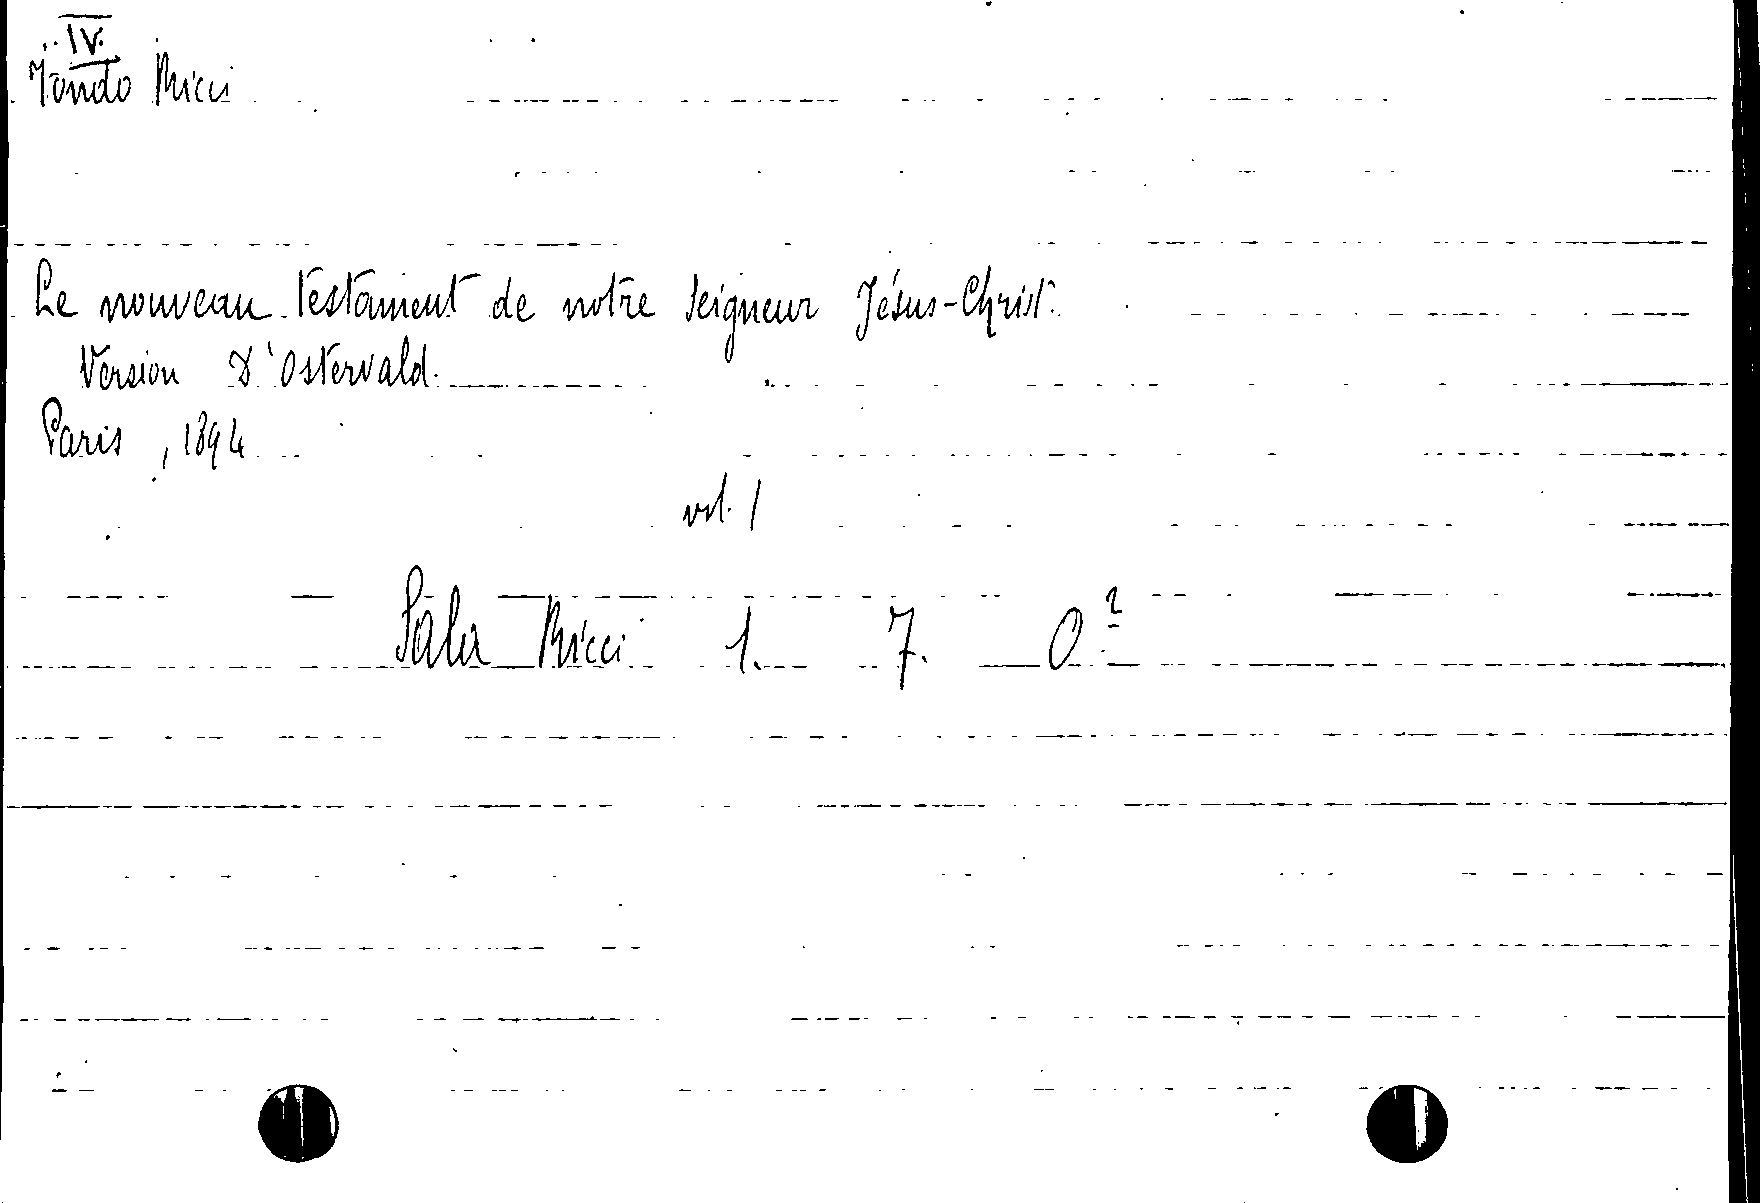 IV.
Fondo Ricci
Le nouveau testament de notre Seigneur Jésus-Christ.
Version d'Ostervald.
Paris, 1894
vol. 1
Sala Ricci 1. 7. O²